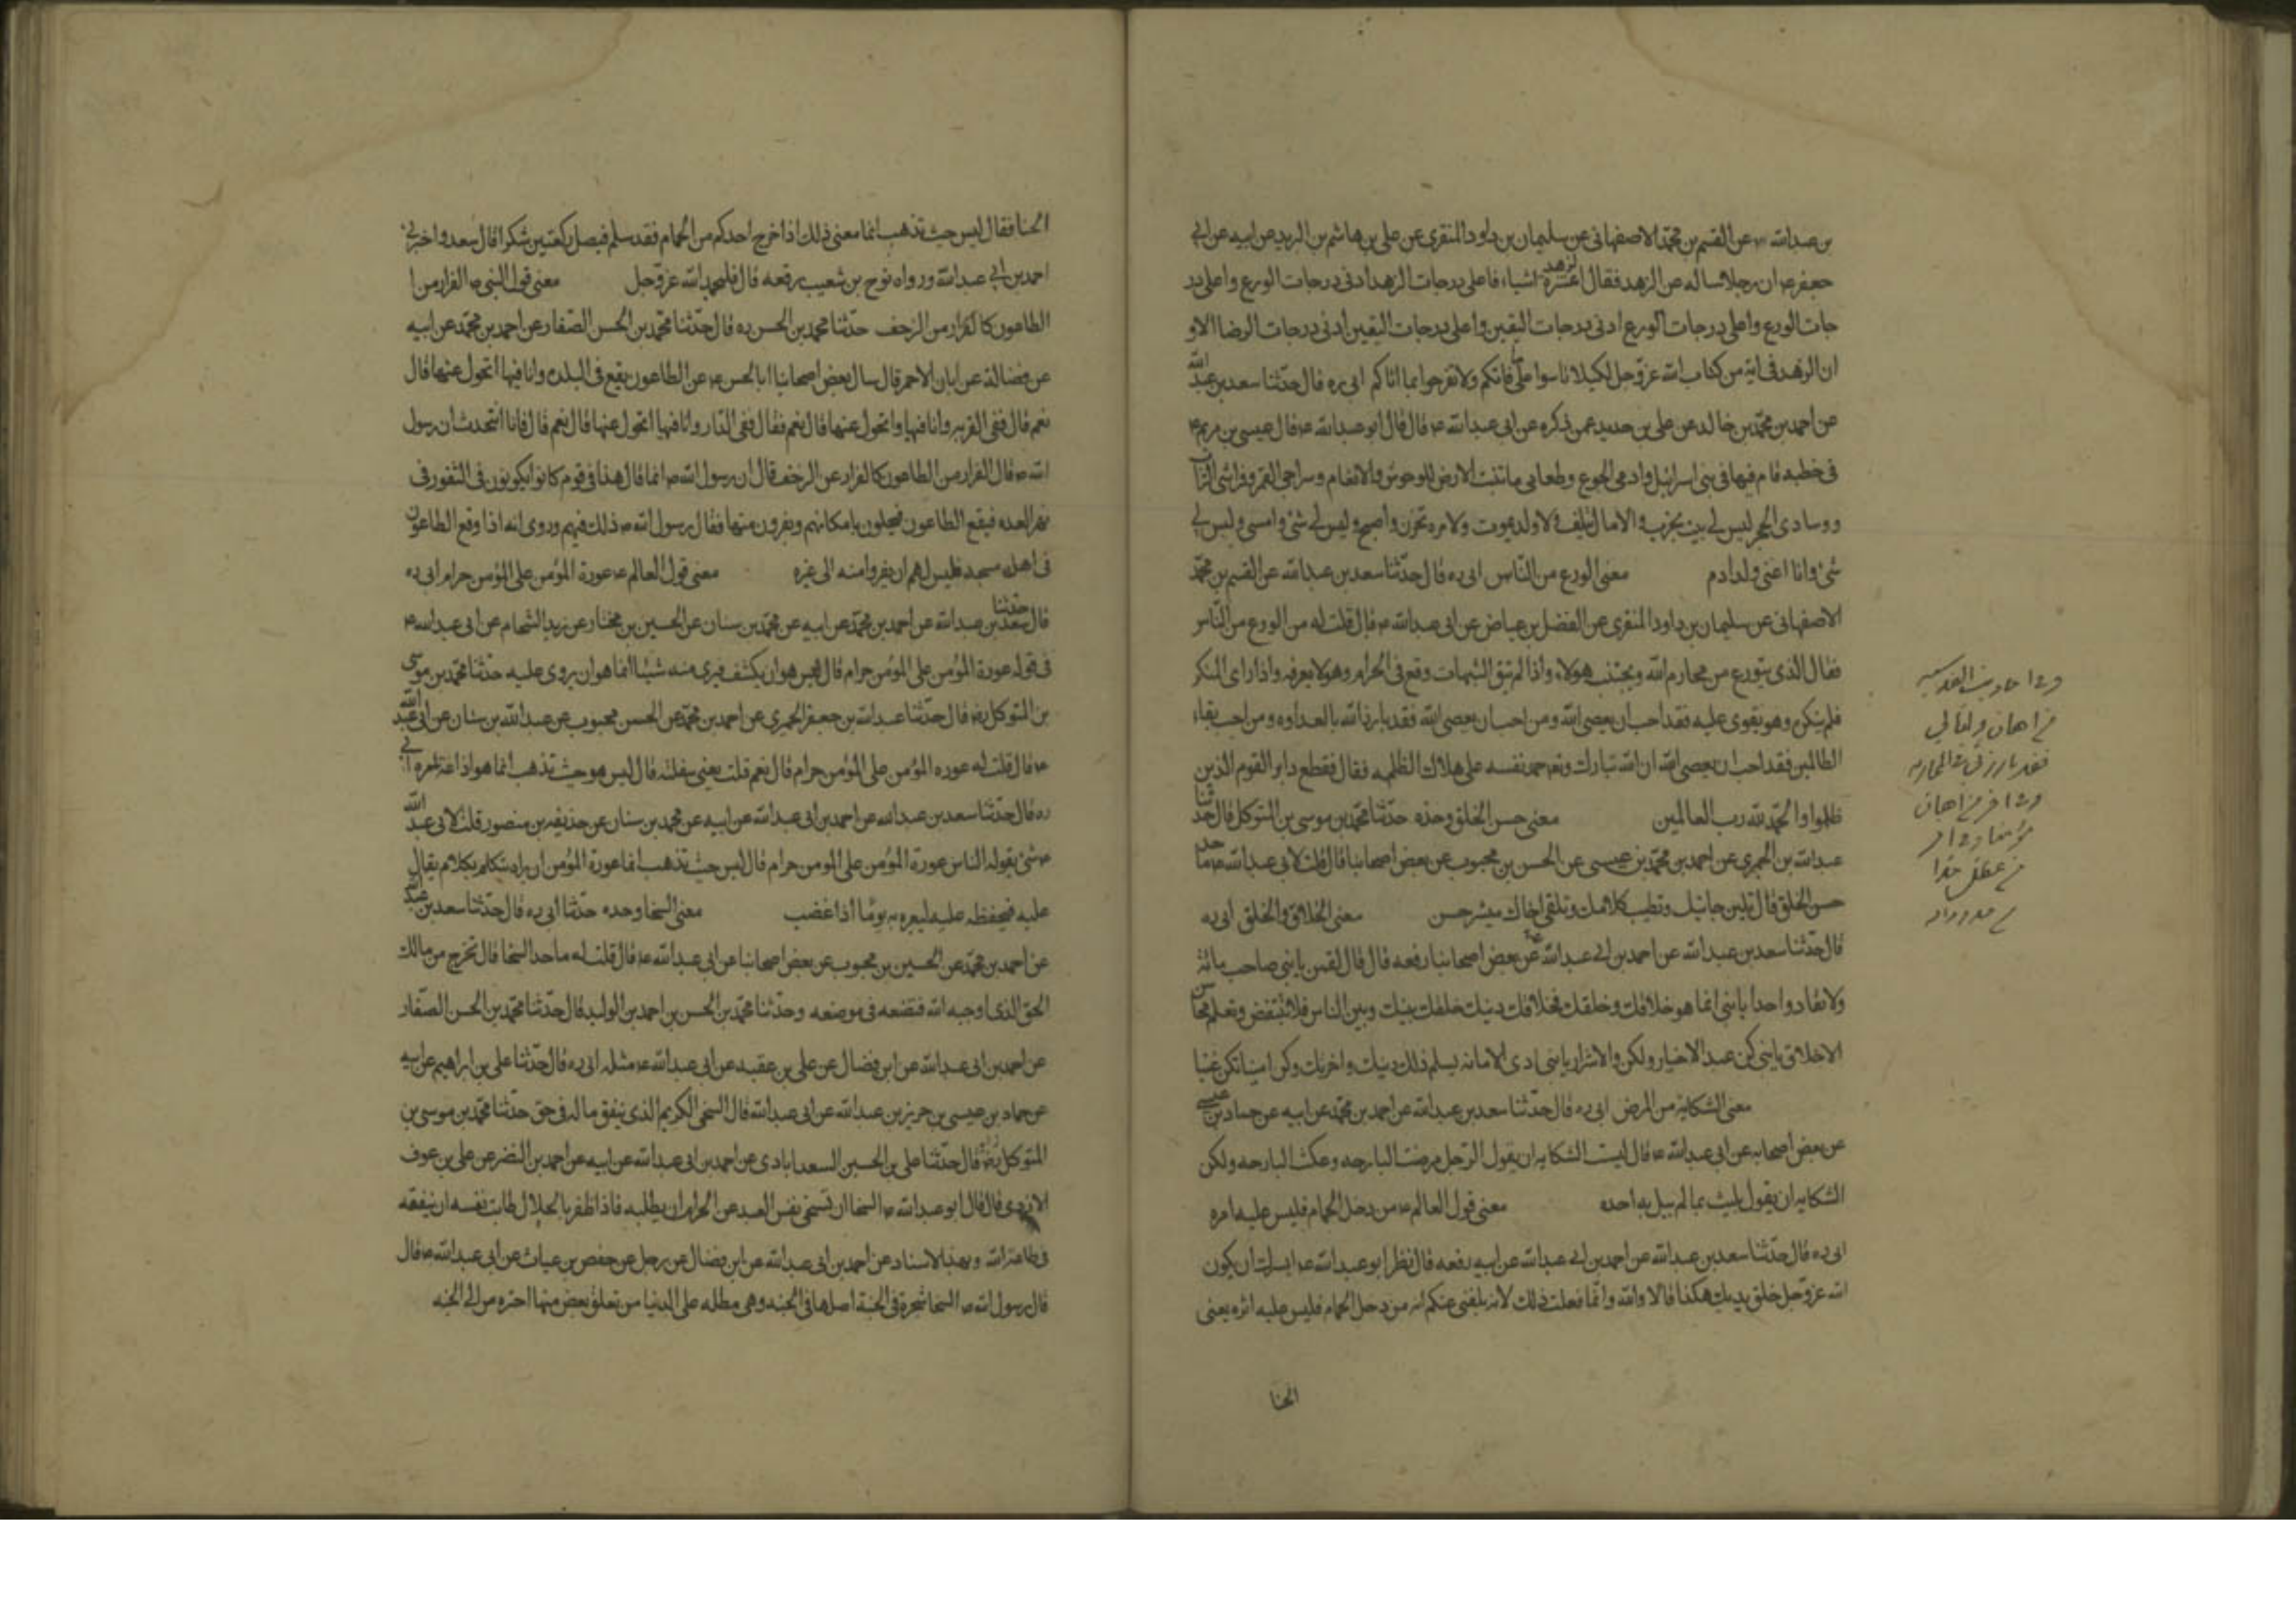 بن عبدالله ره عن القسم بن محمد الاصفهانى عن سليمان بن داود المنقرى عن على بن هاشم بن البريد عن ابيه عن ابى
جعفر ع ان رجلا ساله عن الزهد فقال الزهد عشرة اشياء فاعلى درجات الزهد ادنى درجات الورع واعلى در
جات الورع واعلى درجات الورع ادنى درجات اليقين واعلى درجات اليقين ادنى درجات الرضا الاو
ان الزهد فى اية من كتاب الله عز وجل لكيلا تاسوا على ما فاتكم ولا تفرحوا بما اتاكم ابى ره قال حدثنا سعد بن عبد الله
عن احمد بن محمد بن خالد عن على بن حديد عمن ذكره عن ابى عبدالله ع قال قال ابو عبدالله ع قال عيسى بن مريم ع
فى خطبه قام فيها فى بنى اسرائيل وادمى الجوع وطعامى ما تنبت الارض للوحوش والانعام وسراجى القمر وفراشى التراب
ووسادى الحجر ليس لى بيت يخرب ولا مال يتلف ولا ولد يموت ولا مره تحزن واصبح وليس لى شئ وامسى وليس لى
شئ وانا اغنى ولد ادم معنى الورع من الناس ابى ره قال حدثنا سعد بن عبدالله عن القسم بن محمد
الاصفهانى عن سليمان بن داود المنقرى عن الفضل بن عياض عن ابى عبدالله ع قال قلت له من الورع من الناس
فقال الذى يتورع من محارم الله ويجتنب هولاء واذا لم يتق الشبهات وقع فى الحرام وهو لا يعرفه واذا راى المنكر
فلم ينكره وهو يقوى عليه فقد احب ان يعصى الله ومن احب ان يعصى الله فقد بارز الله بالعداوه ومن احب بقاء
الظالمين فقد احب ان يعصى الله ان الله تبارك وتعا حمد نفسه على هلاك الظلمه فقال فقطع دابر القوم الذين
ظلموا والحمد لله رب العالمين معنى حسن الخلق وحده حدثنا محمد بن موسى بن المتوكل قال حدثنا
عبدالله بن الحميرى عن احمد بن محمد بن عيسى عن الحسن بن محبوب عن بعض اصحابنا قال قلت لابى عبدالله ع ما حد
حسن الخلق قال تلين جانبك وتطيب كلامك وتلقى اخاك ببشر حسن معنى الخلاق والخلق ابى ره
قال حدثنا سعد بن عبدالله عن احمد بن ابى عبدالله عن بعض اصحابنا رفعه قال قال لقمن يا بنى صاحب مائة
ولا تعاد واحدا يا بنى انما هو خلاقك وخلقك فخلاقك دينك وخلقك بينك وبين الناس فلا تبتغض وتعلم محاسن
الاخلاق يا بنى كن عبد الاخيار ولا تكن ولد الاشرار يا بنى اد الامانه يسلم ذلك دينك واخرتك وكن امينا تكن غنيا
معنى الشكاية من المرض ابى ره قال حدثنا سعد بن عبدالله عن احمد بن محمد عن ابيه عن حماد بن عيسى
عن بعض اصحابه عن ابى عبدالله ع قال ليست الشكايه ان يقول الرجل مرضت البارحه وعكت البارحه ولكن
الشكايه ان يقول بليت بما لم يبل به احد معنى قول العالم ع من دخل الحمام فلير عليه اثره
ابى ره قال حدثنا سعد بن عبدالله عن احمد بن ابى عبدالله عن ابيه رفعه قال نظر ابو عبدالله ع
الله عز وجل خلق يديك هكذا قال لا والله وانما فعلت ذلك لانه بلغنى عنكم انه من دخل الحمام فلير عليه اثره يعنى
الحنا
فى اهان ولياً لى
فقد بارزنى بالمحاربه
الحنا فقال ليس حيث تذهب انما معنى ذلك اذا خرج احدكم من الحمام فقد سلم فيصل ركعتين شكرا قال سعد واخبرنى
احمد بن ابى عبدالله ورواه نوح بن شعيب رفعه قال فليحمد الله عز وجل معنى قول النبى ص الفرار من ا
الطاعون كالفرار من الزحف حدثنا محمد بن الحسن ره قال حدثنا محمد بن الحسن الصفار عن احمد بن محمد عن ابيه
عن فضالة عن ابان الاحمر قال سال بعض اصحابنا ابا الحسن ع عن الطاعون يقع فى البلده وانا فيها اتحول عنها قال
نعم قال ففى القريه وانا فيها اتحول عنها قال نعم فقال ففى الدار وانا فيها اتحول عنها قال نعم قال فانا نتحدث ان رسول
الله ص قال الفرار من الطاعون كالفرار عن الزحف قال ان رسول الله ص انما قال هذا فى قوم كانوا يكونون فى الثغور فى
نحر العدو فيقع الطاعون فيخلون بامكانهم ويفرون منها فقال رسول الله ص ذلك فيهم وروى انه اذا وقع الطاعون
فى اهل مسجد فليس لهم ان يفروا منه الى غيره معنى قول العالم ع عورة المؤمن على المؤمن حرام ابى ره
قال حدثنا سعد بن عبدالله عن احمد بن محمد عن ابيه عن محمد بن سنان عن الحسين بن مختار عن زيد الشحام عن ابى عبدالله ع
فى قوله عورة المؤمن على المؤمن حرام قال ليس هو ان يكشف فيرى منه شيئا انما هو ان يروى عليه حدثنا محمد بن موسى
بن المتوكل ره قال حدثنا عبدالله بن جعفر الحميرى عن احمد بن محمد عن الحسن محبوب عن عبدالله بن سنان عن ابى عبد الله
ع قال قلت له عوره المؤمن على المؤمن حرام قال نعم قلت يعنى سفلته قال ليس هو حيث تذهب انما هو اذاعة سره ابى
ره قال حدثنا سعد بن عبدالله عن احمد بن ابى عبدالله عن ابيه عن محمد بن سنان عن حذيفه بن منصور قلت لابى عبد الله
ع شئ يقوله الناس عورة المؤمن على المومن حرام قال ليس حيث تذهب انما عورة المؤمن ان يراه يتكلم بكلام يقال
عليه فيحفظه عليه ليعيره به يوما اذا غضب معنى السخا وحده حدثنا ابى ره قال حدثنا سعد بن عبد الله
عن احمد بن محمد عن الحسين بن محبوب عن بعض اصحابنا عن ابى عبدالله ع قال قلت له ما حد السخا قال تخرج من مالك
الحق الذى اوجبه الله فتضعه فى موضعه وحدثنا محمد بن الحسن بن احمد بن الوليد قال حدثنا محمد بن الحسن الصفار
عن احمد بن ابى عبدالله عن ابن فضال عن على بن عقبه عن ابى عبدالله ع مثله ابى ره قال حدثنا على بن ابراهيم عن ابيه
عن حماد بن عيسى بن حريز بن عبدالله عن ابى عبدالله قال السخى الكريم الذى ينفق ماله فى حق حدثنا محمد بن موسى بن
المتوكل ره قال حدثنا على بن الحسين السعدابادى عن احمد بن ابى عبدالله عن ابيه عن احمد بن النضر عن على بن عوف
الازدى قال قال ابو عبدالله ع السخا ان تسخى نفس العبد عن الحرام ان يطلبه فاذا ظفر بالحلال طابت نفسه ان ينفقه
فى طاعة الله وبهذا الاسناد عن احمد بن ابى عبدالله عن ابن فضال عن رجل عن حفص بن غياث عن ابى عبدالله ع قال
قال رسول الله ص السخا شجرة فى الجنة اصلها فى الجنه وهى مطله على الدنيا من تعلق بغصن منها اجتره الى الجنه